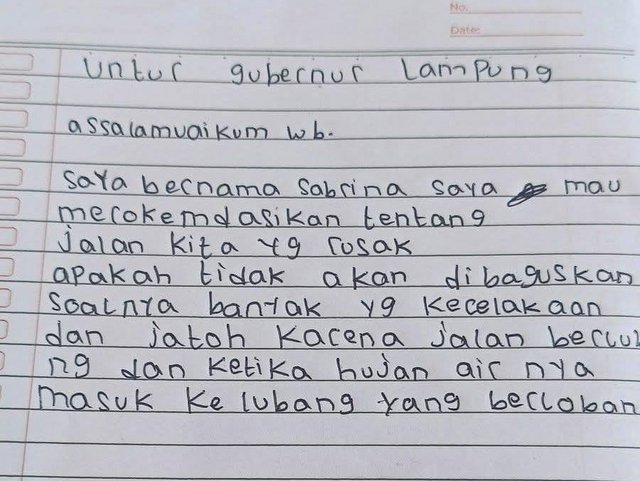 No.
Date:
untur gubernur Lampung
assalamuaikum wb.
saya bernama sabrina saya mau
merokemdasikan tentang
jalan kita yg rusak
apakah tidak akan dibaguskan
soalnya banyak yg kecelakaan
dan jatoh karena jalan berlu
ng dan ketika hujan air nya
masuk ke lubang yang berloban